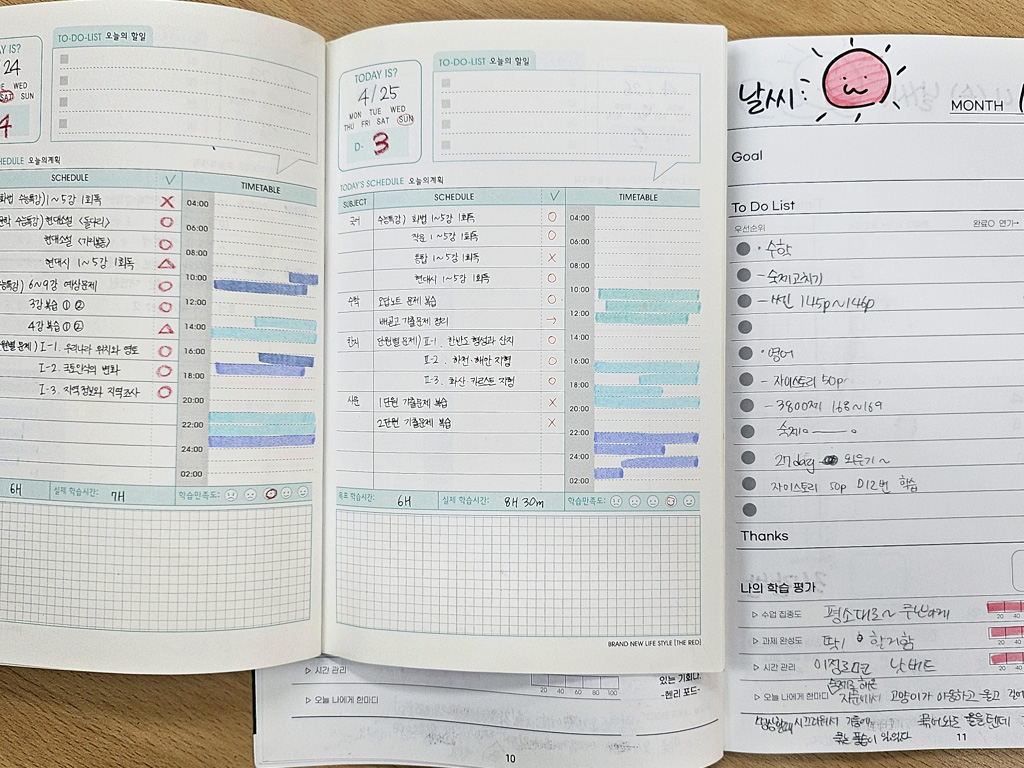 AY IS?
24
E WED
SAT SUN
4
TO-DO-LIST 오늘의 할일
SCHEDULE 오늘의계획
SCHEDULE √ TIMETABLE
화법 수능특강) 1~5강 1회독 X
문학 수능특강) 현대소설 〈들다리〉 O
현대소설 O
현대시 1~5강 1회독 △
수능특강) 6~9강 예상문제 O
3강 복습 ① ② O
4강 복습 ① ② △
단원별 문제) I-1. 우리나라 위치와 영토 O
I-2. 국토인식의 변화 O
I-3. 지역정보와 지역조사 O
04:00
06:00
08:00
10:00
12:00
14:00
16:00
18:00
20:00
22:00
24:00
02:00
6H 실제 학습시간: 7H 학습만족도:
TODAY IS?
4/25
MON TUE WED
THU FRI SAT SUN
D- 3
TO-DO-LIST 오늘의 할일
TODAY'S SCHEDULE 오늘의계획
SUBJECT SCHEDULE √ TIMETABLE
국어 수능특강) 화법 1~5강 1회독 O
작문 1~5강 1회독 O
융합 1~5강 1회독 X
현대시 1~5강 1회독 O
수학 오답노트 문제 복습 O
배운고 기출문제 정리 →
한지 단원별문제) II-1. 한반도 형성과 산지 O
II-2. 하천·해안 지형 O
II-3. 화산 카르스트 지형 O
사문 1단원 기출문제 복습 X
2단원 기출문제 복습 X
04:00
06:00
08:00
10:00
12:00
14:00
16:00
18:00
20:00
22:00
24:00
02:00
목표 학습시간: 6H 실제 학습시간: 8H 30m 학습만족도:
BRAND NEW LIFE STYLE [THE RED]
▷ 시간 관리
20 40 60 80 100
있는 기회다.
-헨리 포드-
▷ 오늘 나에게 한마디
10
날씨:
MONTH
Goal
To Do List
우선순위 완료O 연기→
· 수학
- 숙제고치기
- 쎈 145p~146p
· 영어
- 자이스토리 50p
- 3800제 168~169
숙제
27day 외우기~
자이스토리 50p 012번 학습
Thanks
나의 학습 평가
▷ 수업 집중도 평소대로~ 무난하게
20 40
▷ 과제 완성도 딱! 한거함
20 40
▷ 시간 관리 낫배드
20 40
▷ 오늘 나에게 한마디 고양이가 야옹하고 울고
시끄러워서
11